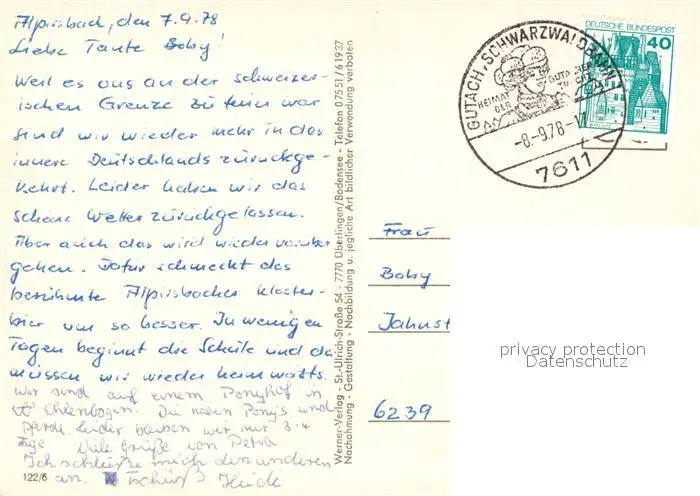 Alpirsbach, den 7.9.78
Liebe Tante Boby!
Weil es uns an der schweizer-
ischen Grenze zu teuer war
sind wir wieder mehr in das
innere Deutschlands zurückge-
kehrt. Leider haben wir das
schöne Wetter zurückgelassen.
Aber auch das wird wieder vorüber
gehen. Dafür schmeckt das
berühmte Alpirsbacher Kloster-
bier um so besser. In wenigen
Tagen beginnt die Schule und da
müssen wir wieder heimwärts.
Wir sind auf einem Ponyhof in
Ehlenbogen. Die neuen Ponys und
Pferde leider bleiben wir nur 3-4
Tage Viele Grüße von Petra
Ich schließe mich den anderen
an. Tschüß Heidi
122/6
Werner-Verlag - St.-Ulrich-Straße 54 - 7770 Überlingen/Bodensee - Telefon 07551/61937
Nachahmung - Gestaltung - Nachbildung u. jegliche Art bildlicher Verwendung verboten
GUTACH, SCHWARZWALDBAHN
HEIMAT
DER
-8.-9.78-
7611
DEUTSCHE BUNDESPOST
40
Frau
Boby
Jahnst
6239
privacy protection
Datenschutz